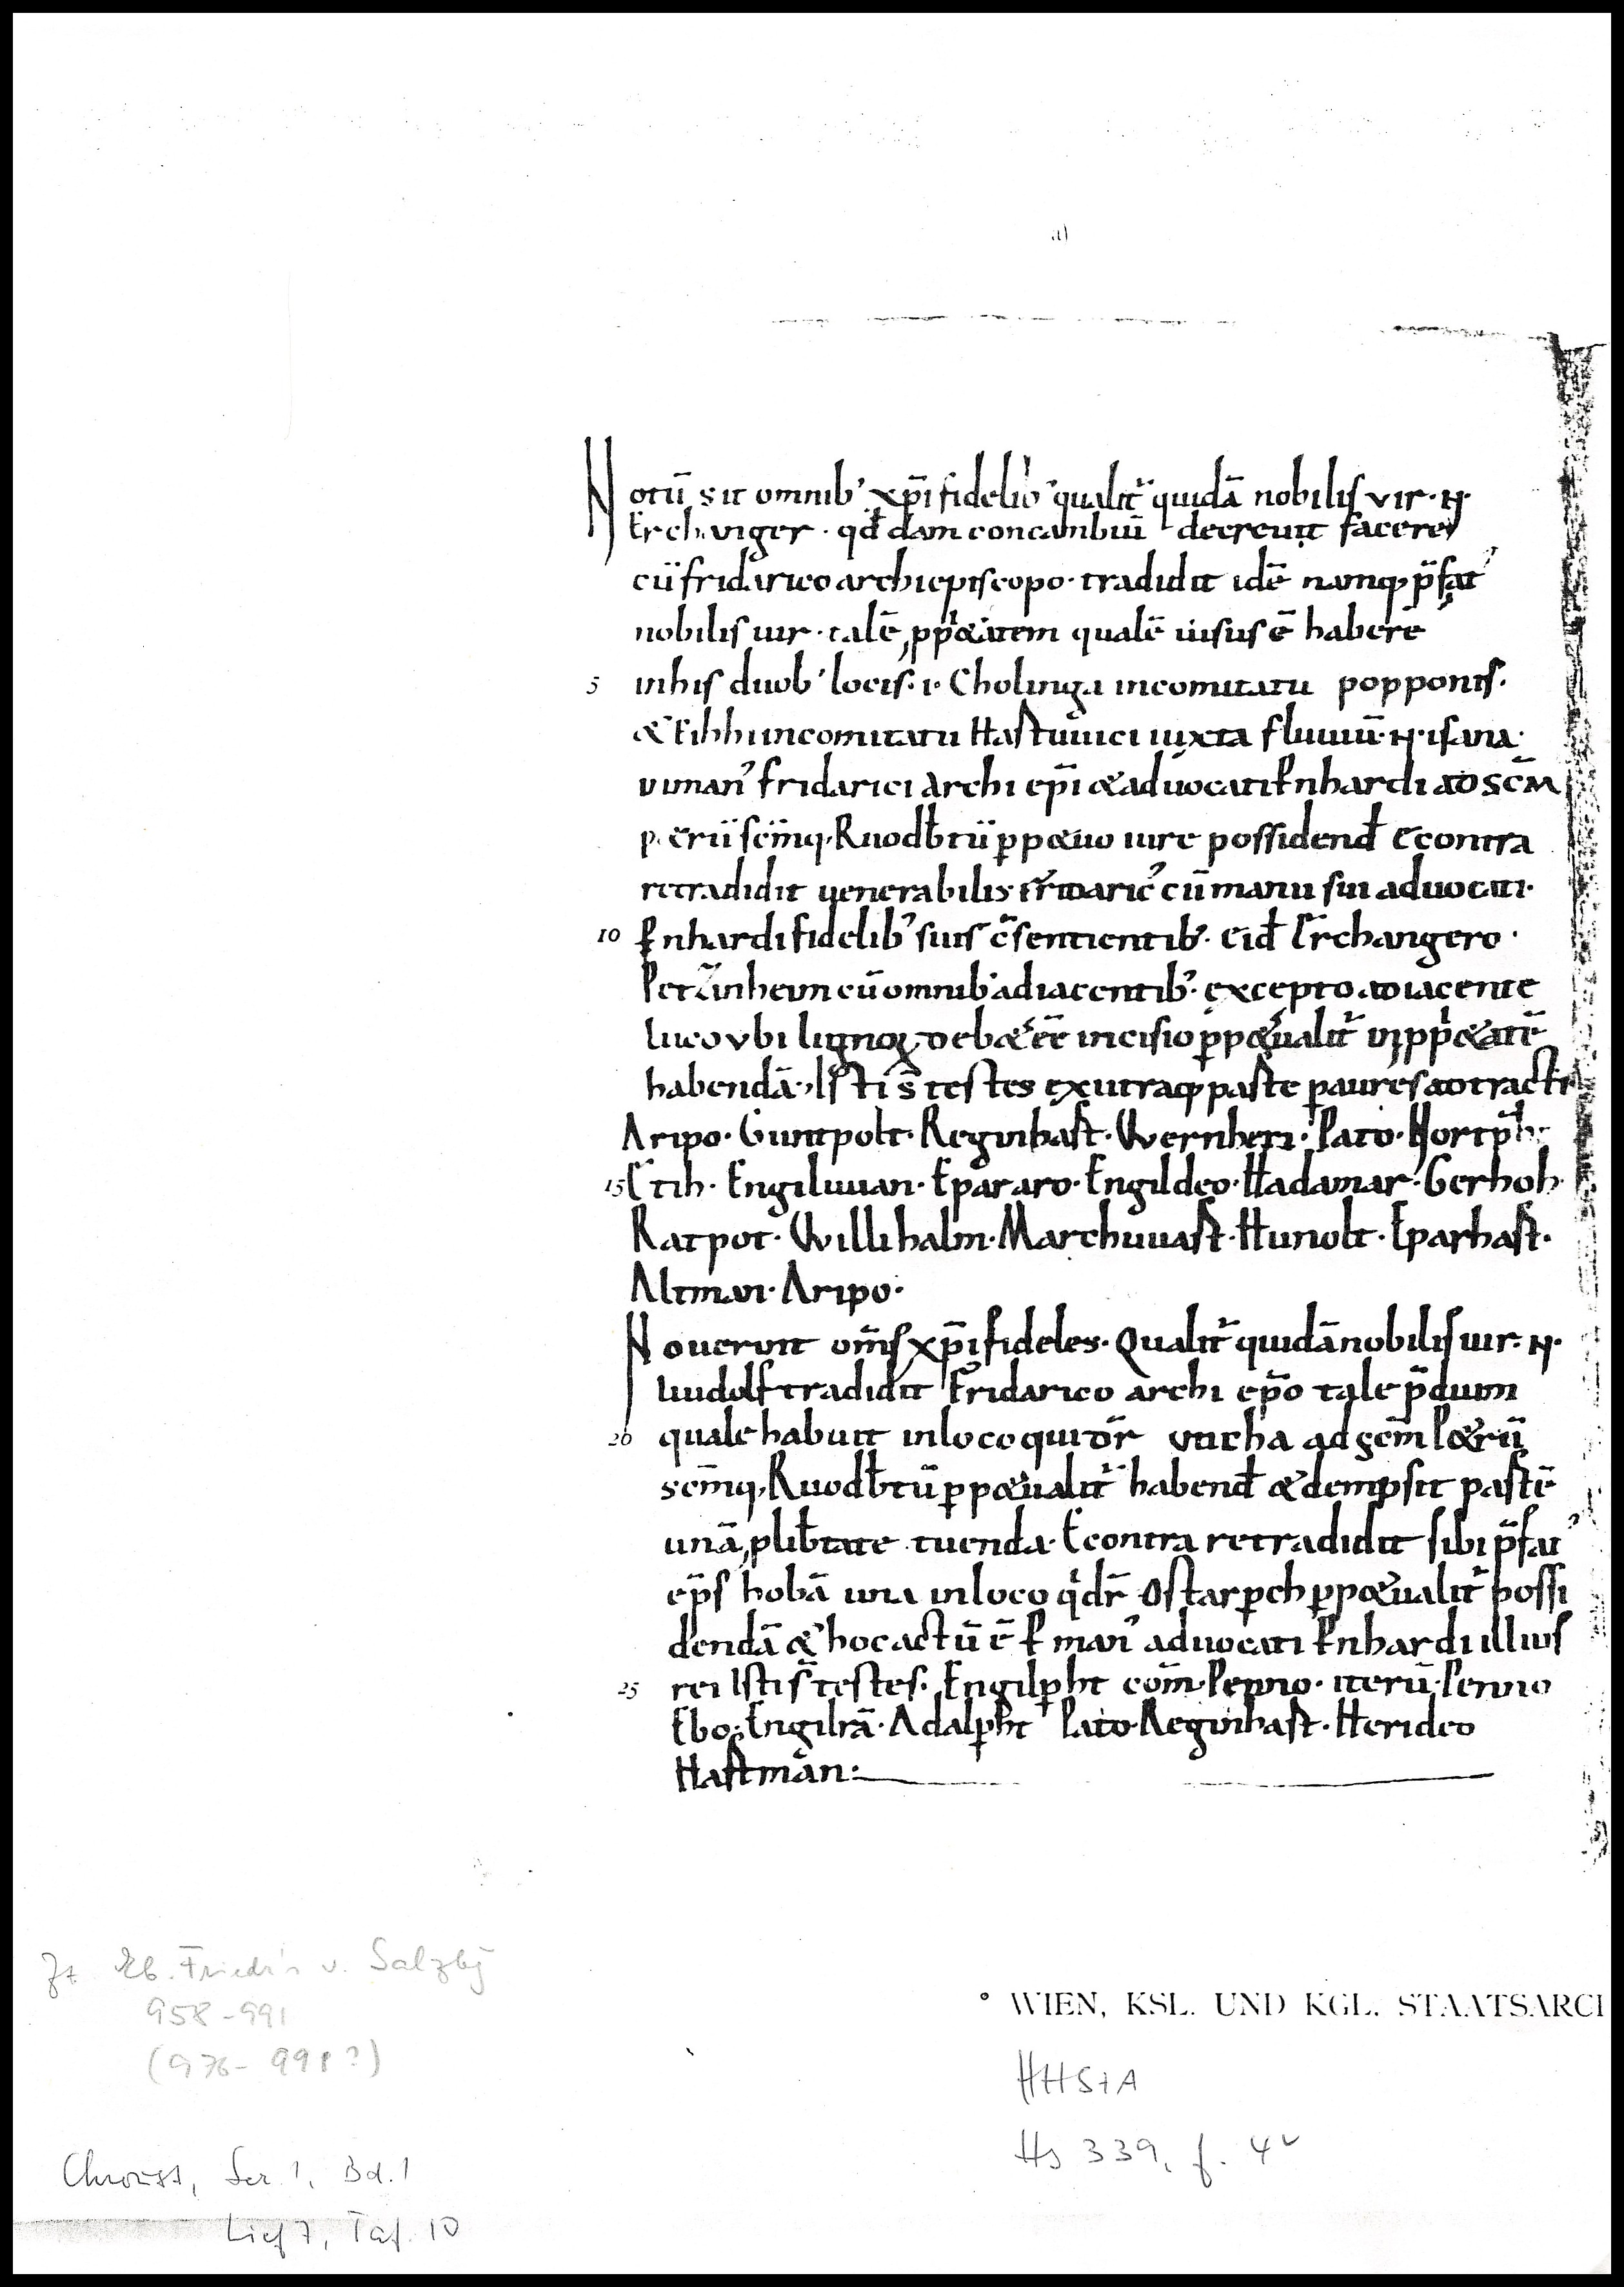 Notū sit omnib' xp̄i fidelib' qualit̄ quidā nobilis vir · N ·
Erchanger · qđdam concambiū decreuit facere
cū fridarico archiepiscopo · tradidit idē namq; p̄fat'
nobilis uir · talē ppi&atem qualē uisus ē habere
5 in his duob' locis · i · Cholinga in comitatu popponis ·
& in comitatu Hartuuici iuxta fluuiū · N · isana ·
in man' fridarici archi ep̄i & aduocati Pnhardi ad sc̄m
p&rū sc̄mq; Ruodb̄tū pp&uo iure possidenđ Econtra
retradidit uenerabilis fridaric' cū manu sui aduocati ·
10 Pnhardi fidelib' suis c̄sentientib' · eiđ Erchangero ·
Petzinheim cū omnib' adiacentib' · excepto adiacente
luco vbi lignoꝝ deb& ēē incisio pp&ualit̄ in ppi&atē
habendā · Isti s̄ testes ex utraq; parte p aures adtracti
Aripo · Guntpolt · Reginhart · Wernheri · Pato · Nortp̄ht
15 Etih · Engiluuan · Epararo · Engildeo · Hadamar · Gerhoh
Ratpot · Willihalm · Marchuuart · Hunolt · Eparhart ·
Altman · Aripo ·
Nouerint om̄s xp̄i fideles · Qualit̄ quidā nobilis uir · N ·
liudolf tradidit Fridarico archi ep̄o tale p̄dium
20 quale habuit in loco qui dr̄ vticha ad sc̄m P&rū
sc̄mq; Ruodb̄tū pp&ualit̄ habenđ & dempsit partē
unā, p lib̄tate tuenda · Econtra retradidit sibi p̄fat'
ep̄s hobā unā in loco qđ dr̄ Ostarperch pp&ualit̄ possi
dendā & hoc actū ē p man' aduocati Pnhardi illius
25 rei Isti s̄ testes · Engilp̄ht com̄ · Penno · iterū · Penno
Ebo · Engilrā · Adalp̄ht Pato · Reginhart · Herideo
Hartman :
Zt Eb. Friedr. v. Salzbg
958-991
(976-991?)
° WIEN, KSL. UND KGL. STAATSARCI
HHStA
Hs 339, f. 4v
Chroust, Ser. 1, Bd. 1
Lief 7, Taf. 10